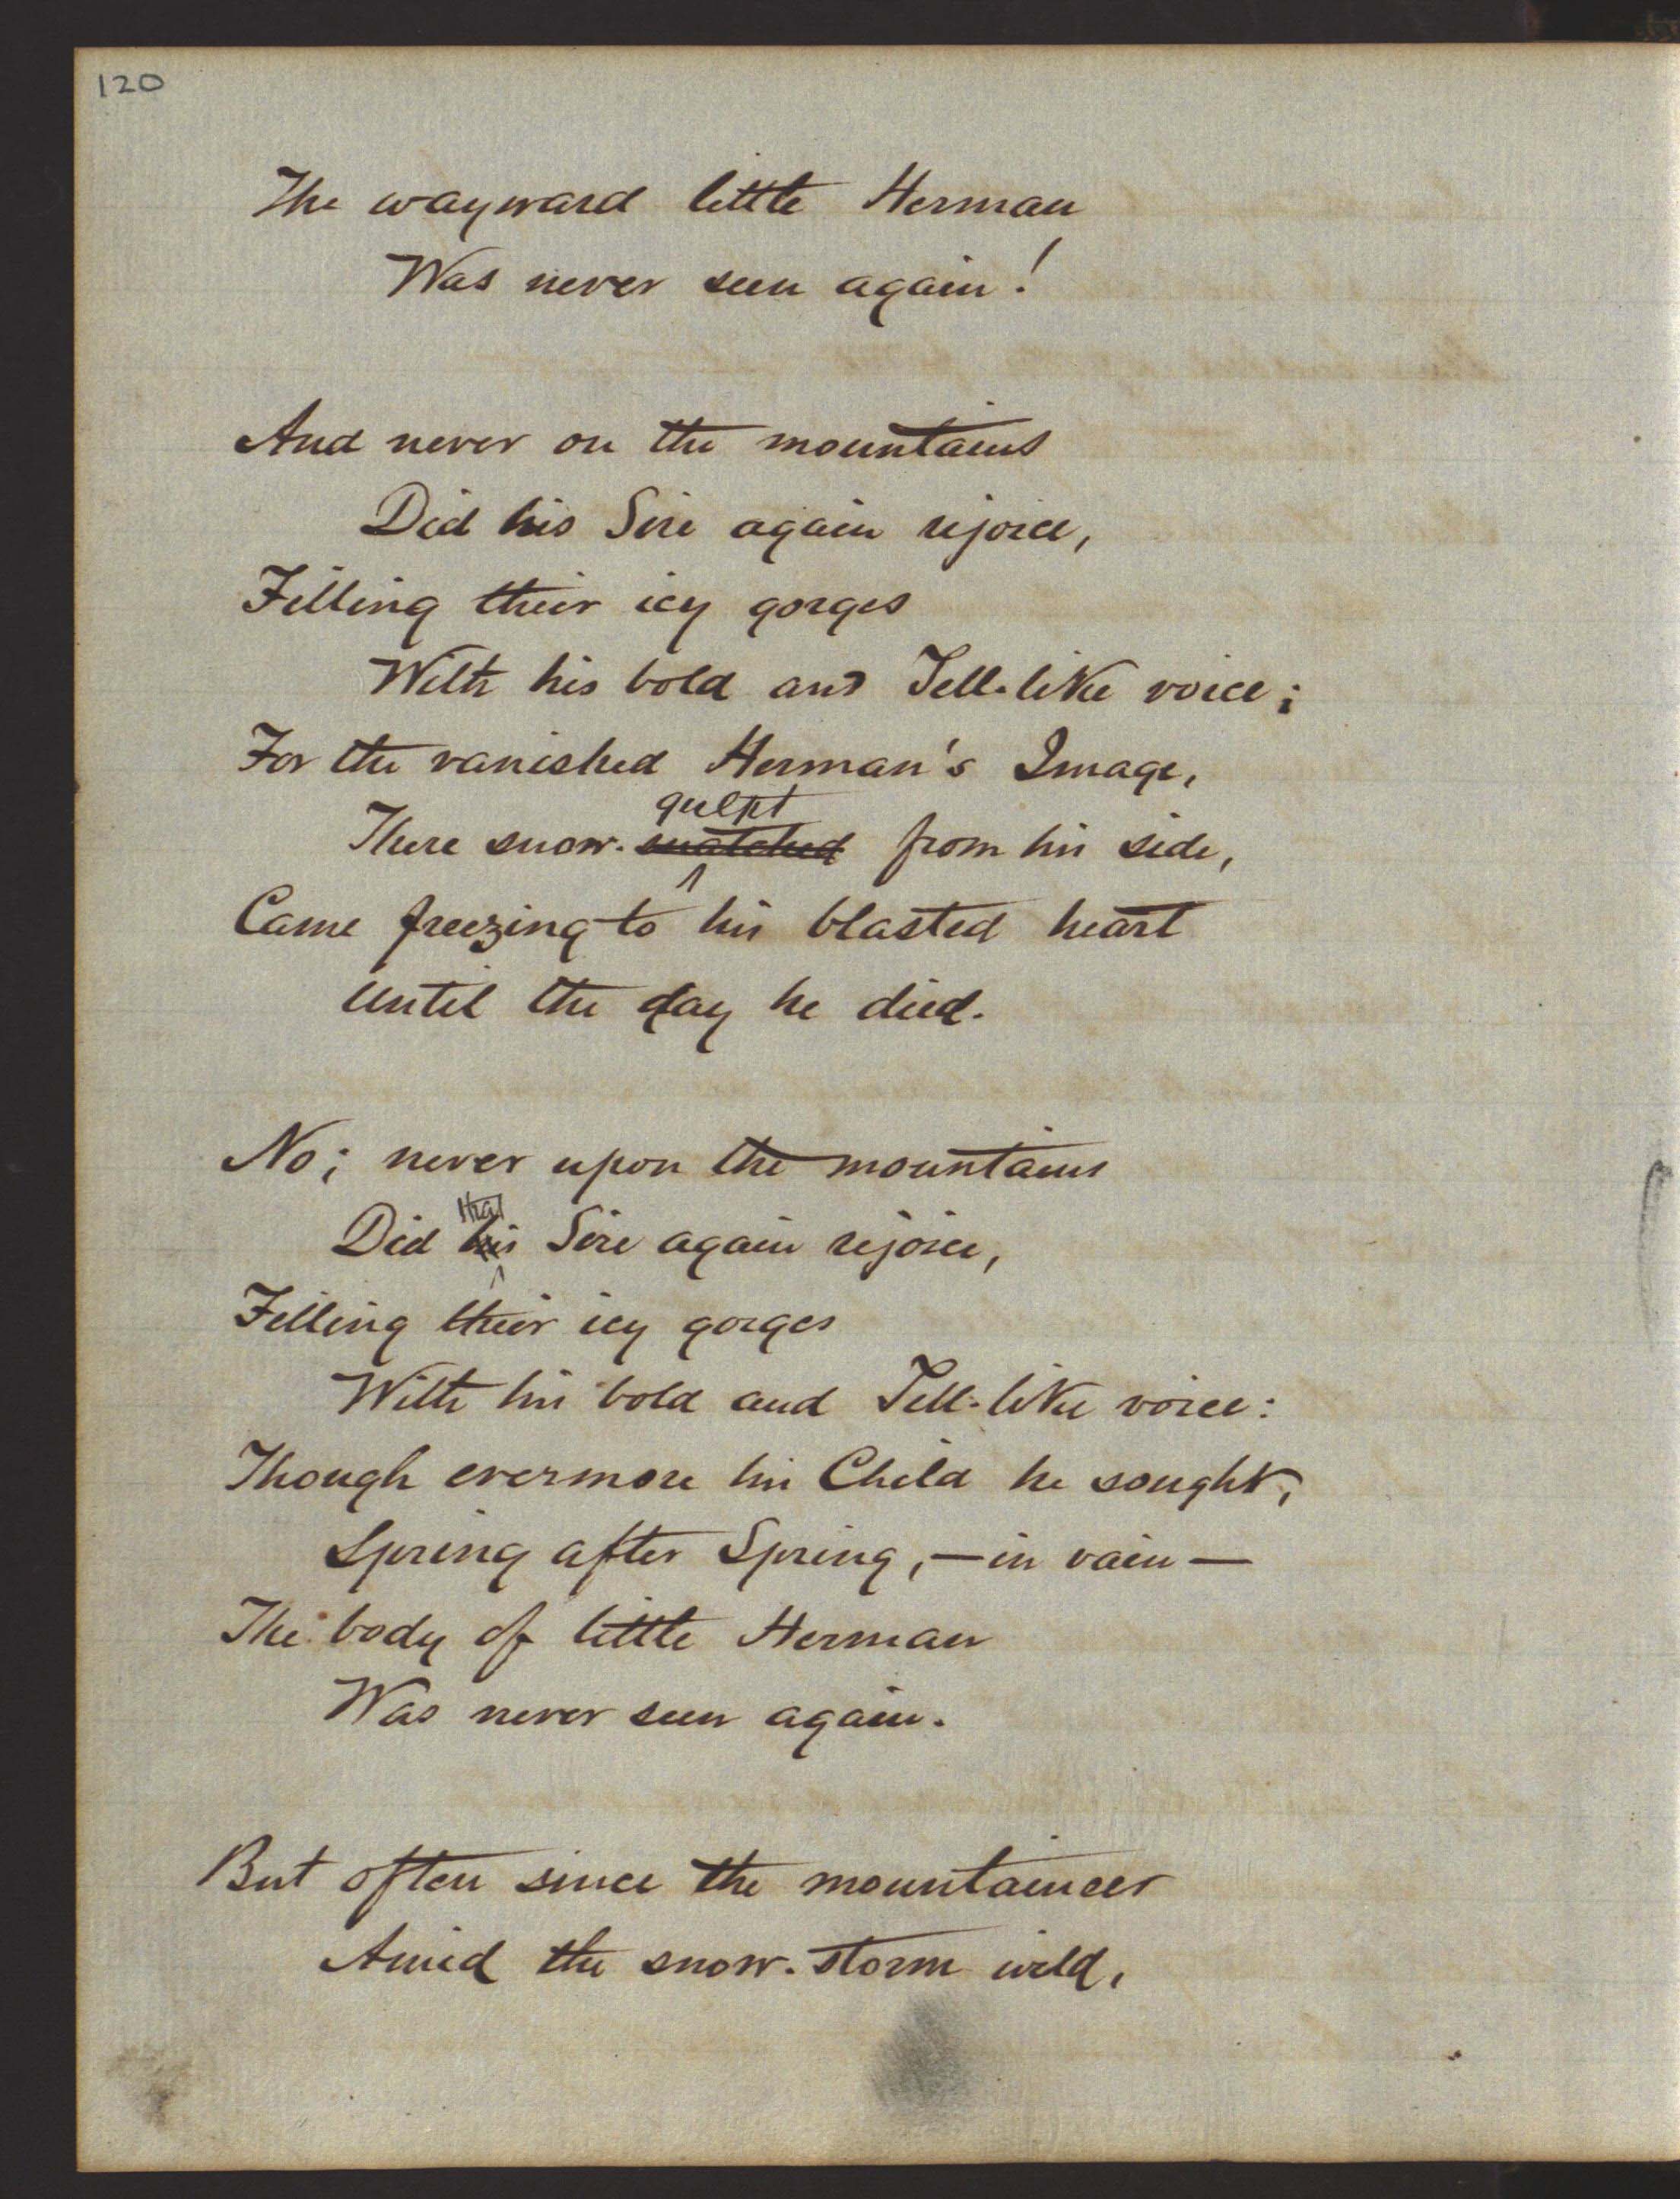 120
The wayward little Herman
Was never seen again!
And never on the mountains
Did his Sire again rejoice,
Filling their icy gorges
With his bold and Tell-like voice;
For the vanished Herman's Image,
gulpt
There snow-snatched from his side,
Came freezing to his blasted heart
Until the day he died.
No; never upon the mountains
that
Did his Sire again rejoice,
Filling their icy gorges
With his bold and Tell-like voice:
Though evermore his Child he sought,
Spring after Spring,—in vain—
The body of little Herman
Was never seen again.
But often since the mountaineer
Amid the snow-storm wild,